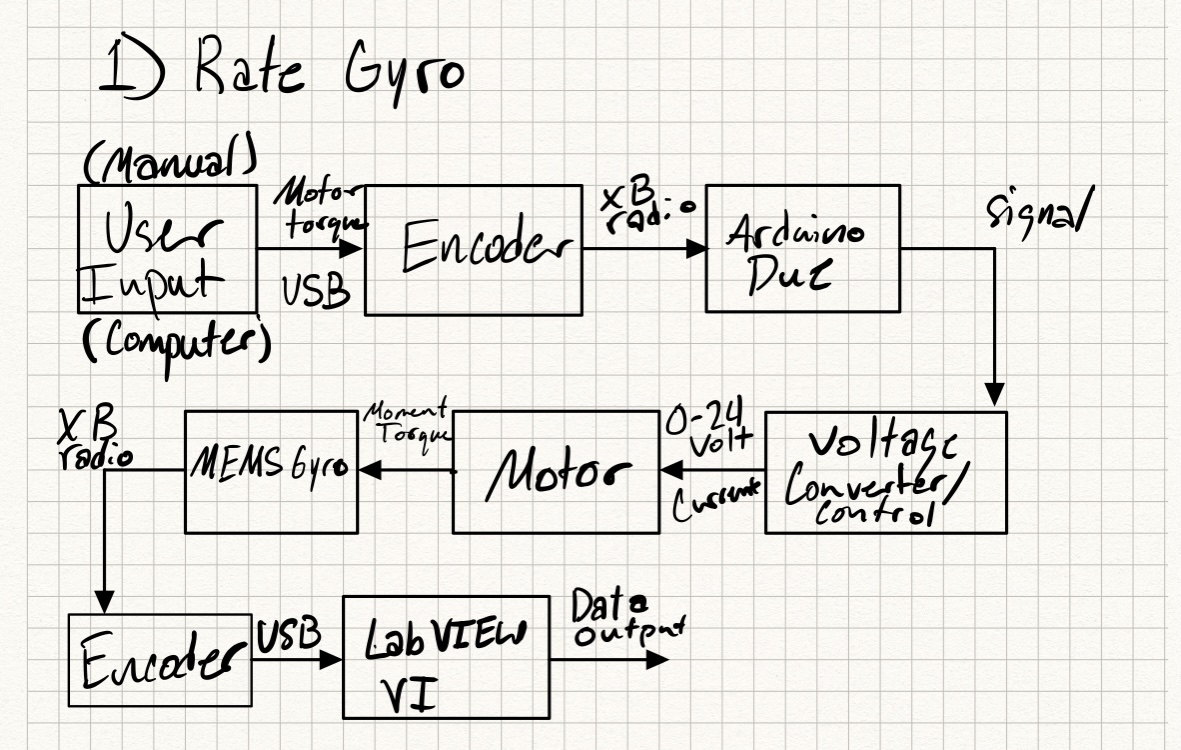 1) Rate Gyro
(Manual)
User
Input
(Computer)
Motor
torque
USB
Encoder
XB
radio
Arduino
Due
Signal
Voltage
Converter/
Control
0-24
Volt
Current
Motor
Moment
Torque
MEMS Gyro
XB
radio
Encoder
USB
LabVIEW
VI
Data
output